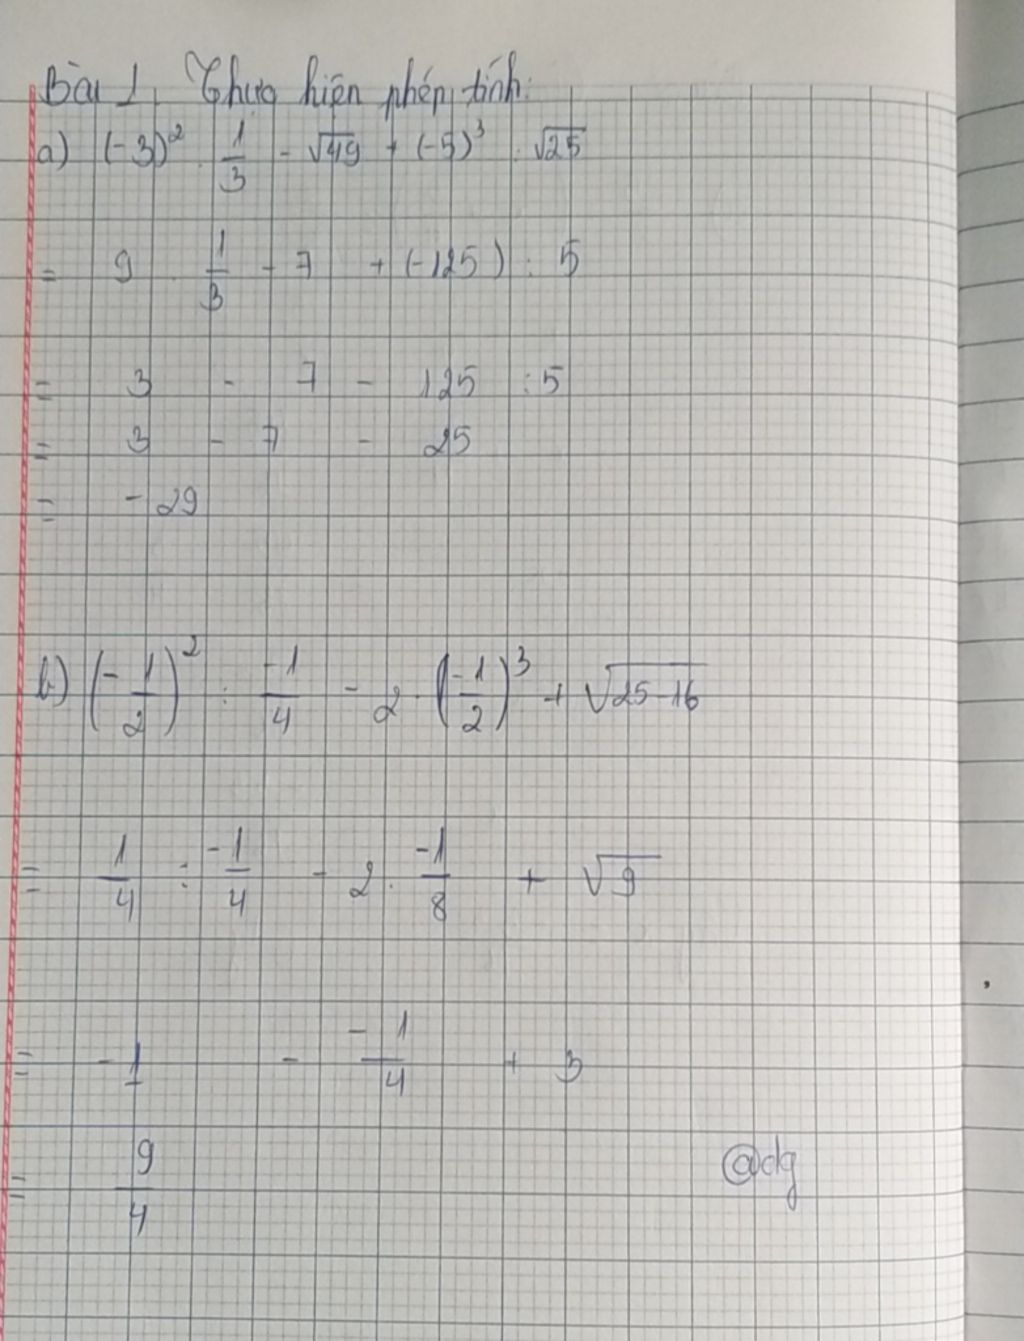 Bài 1 Thực hiện phép tính:
a) (-3)² . 1/3 - √49 + (-5)³ : √25
= 9 . 1/3 - 7 + (-125) : 5
= 3 - 7 - 125 : 5
= 3 - 7 - 25
= - 29
b) (-1/2)² : -1/4 - 2 . (-1/2)³ + √25-16
= 1/4 : -1/4 - 2 . -1/8 + √9
= -1 - -1/4 + 3
= 9/4
@dg